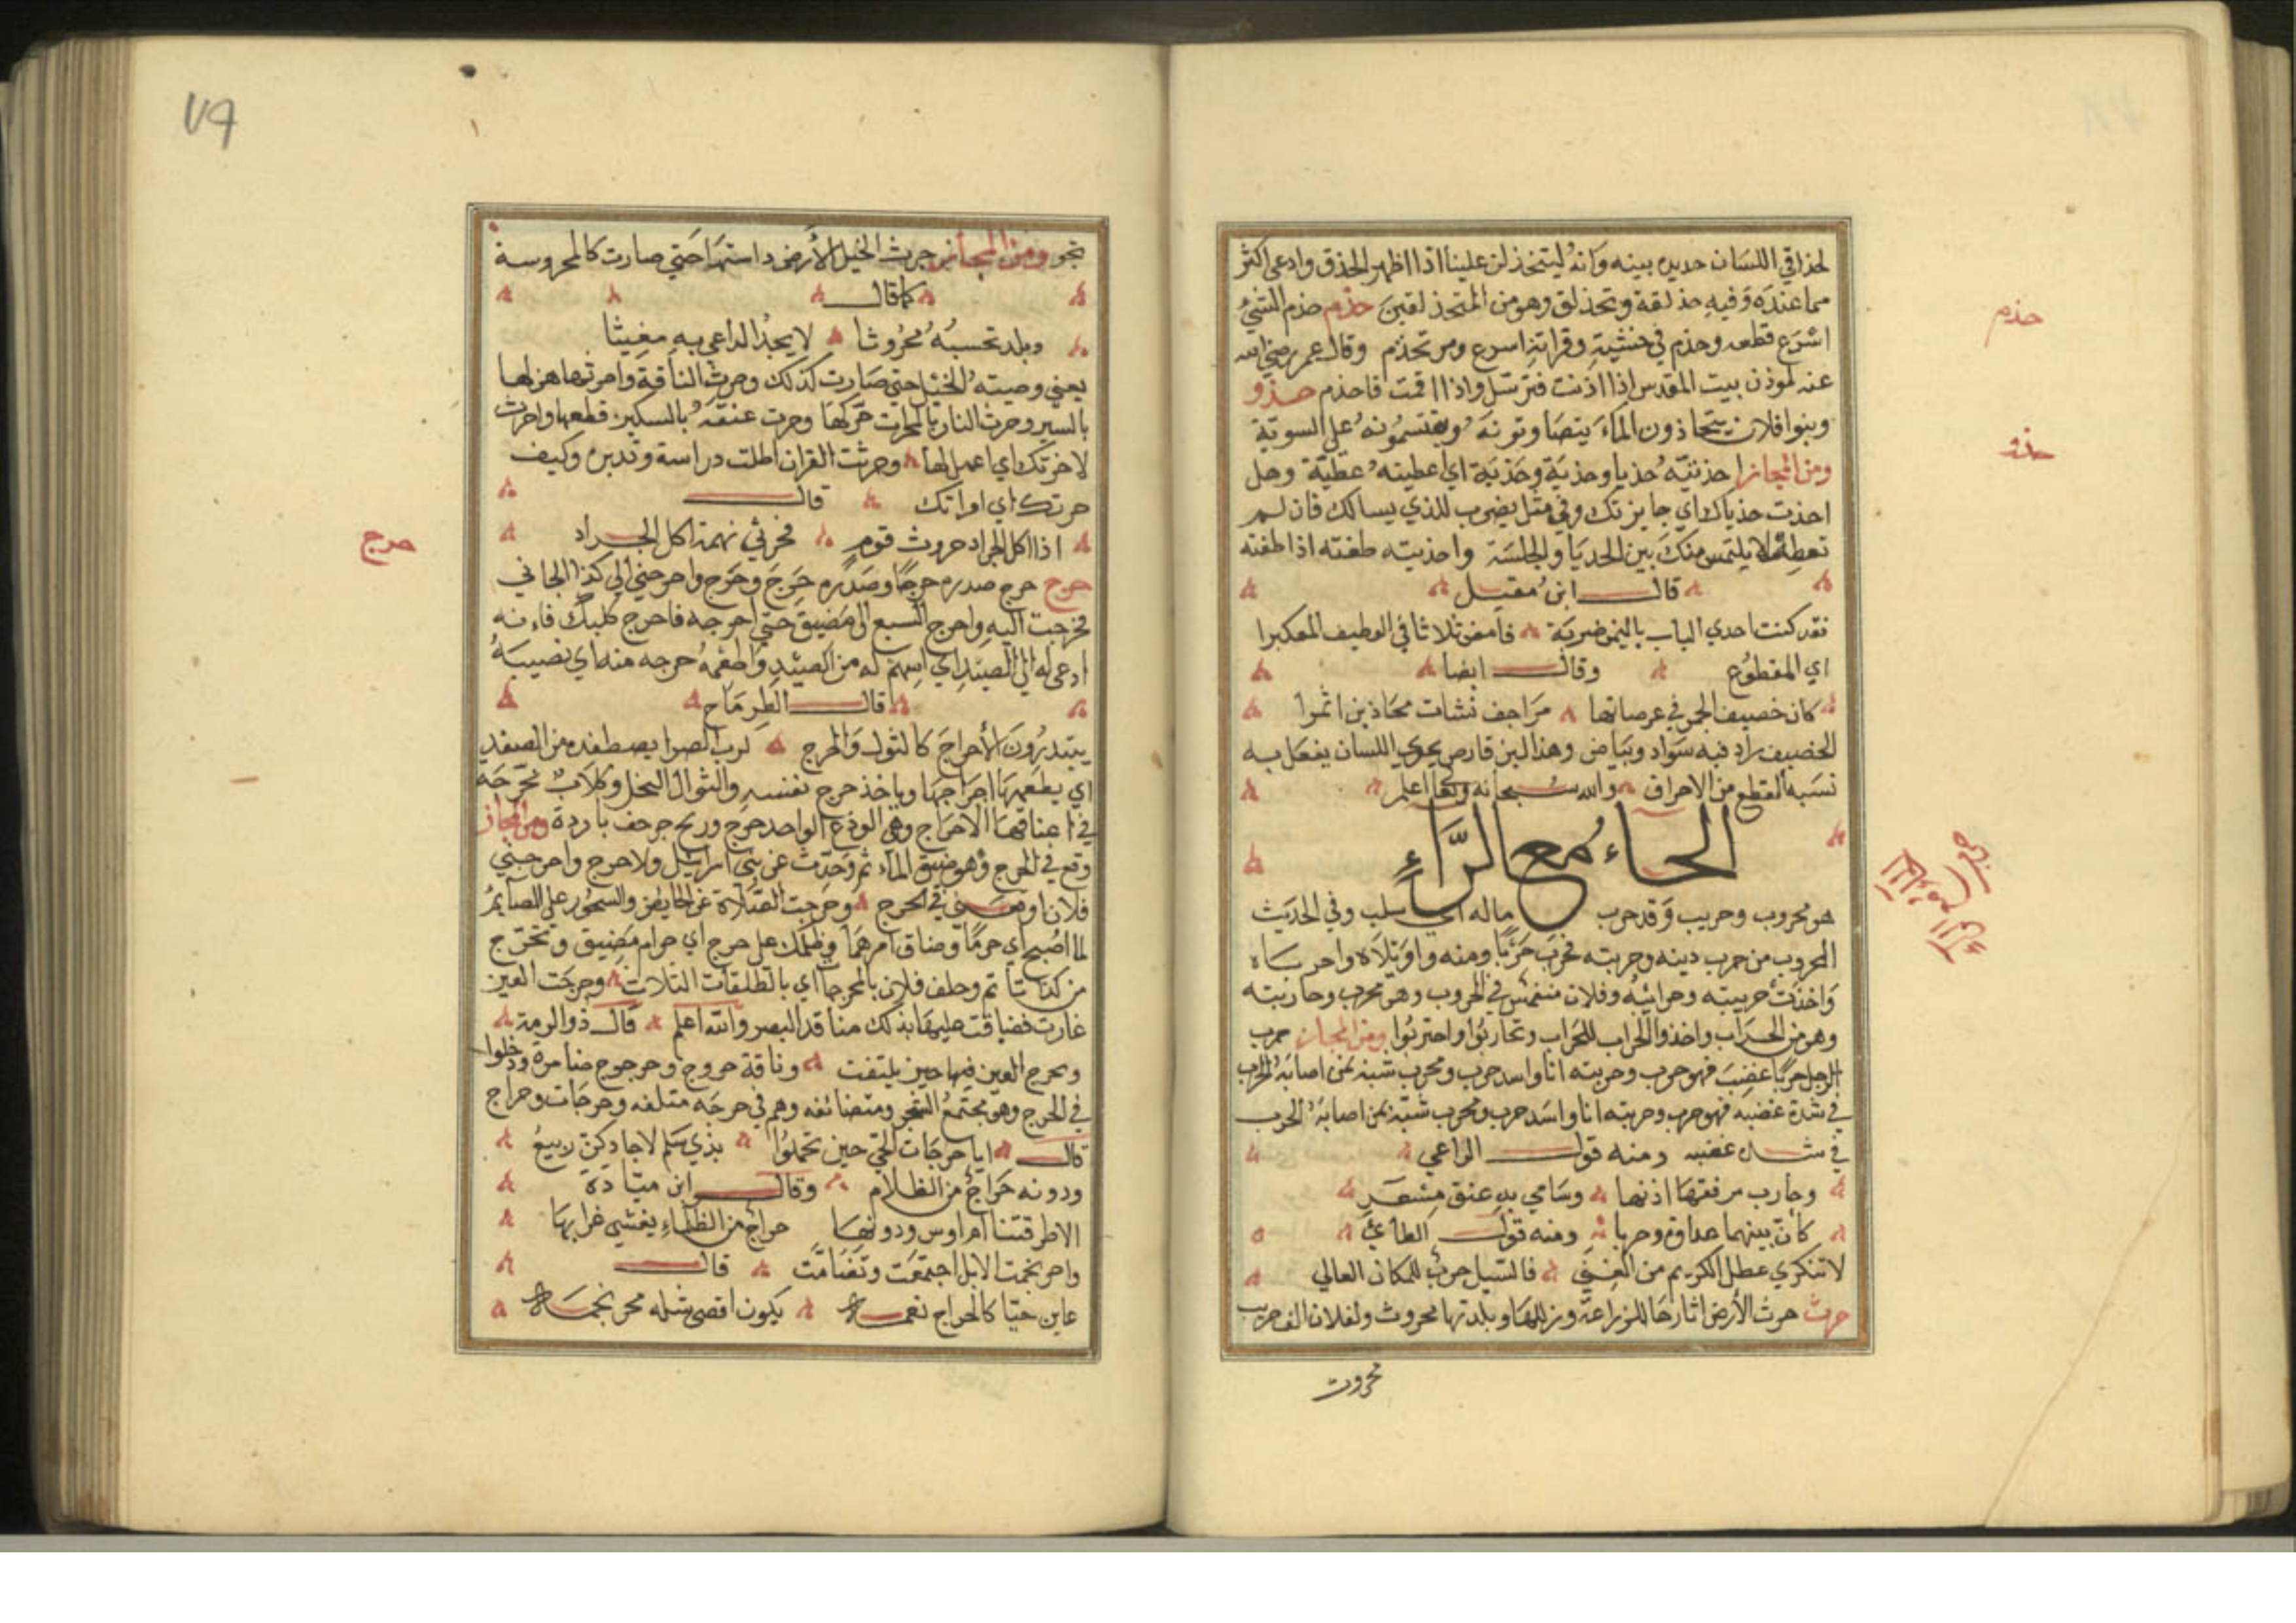 لحذاقي اللسان حديده بينه وانه ليتحذلق علينا اذا اظهر الحذق وادعى اكثر
مما عنده وفيه حذلقة وتحذلق وهو من المتحذلقين حذم حذم الشيء
اسرع قطعه وحذم في مشيته وقراءته اسرع ومر تحذم وقال عمر رضي الله
عنه لموذن بيت المقدس اذا اذنت فترسل واذا اقمت فاحذم حذو
وبنوا فلان يتحاذون الماء يتصاوتونه ويقتسمونه على السوية
ومن المجاز احذيته حذيا وحذية وحذية اي اعطيته عطية وهل
اخذت حذياك اي جايزتك وفي مثل يضرب للذي يسالك فان لم
تعطه لا يلتمس منك بين الحديا والخلسة واحذيته طعنته اذا طعنته
قال ابن مقبل
فقد كنت احدي الباب بالنيمن ضربة فامعن ثلاثا في الوطيف المعكبرا
اي المقطوع وقال ايضا
كان خصيف الجمر في عرصاتها مزاجف نشات محاذين اثمرا
الخصيف رماد فيه سواد وبياض وهذا لبن قارص يحذي اللسان يفعل به
نسبه القطع من الاحراق والله سبحانه وتعالى اعلم
الحاء مع الراء
هو محروب وحريب وقد حرب ماله اي سلب وفي الحديث
المحروب من حرب دينه وحربته فحرب حربا ومنه واويلاه واحرباه
واخذت حريبته وحرائبه وفلان منغمس في الحروب وهو محرب وحاربته
وهو من الحراب واخذوا الحراب للحراب وتحاربوا واحتربوا ومن المجاز حرب
الرجل حربا غضب فهو حرب وحربته انا واسد حرب ومحرب شبه بمن اصابه الحرب
في شدة غضبه فهو حرب وحربته انا واسد حرب ومحرب شبه بمن اصابه الحرب
في شدة غضبه ومنه قول الراعي
وحارب مرفقها اذنها وسامى به عنق مشعر
كان بينهما عداوة وحربا ومنه قول الطائي
لا تنكري عطل الكريم من الغنى فالسيل حرب للمكان العالي
حرث حرث الارض اثارها للزراعة وزللها وبلدتها محروث ولفلان الف حريب
محروث
حذم
حذو
٧٩
نحو ومن المجاز حرث الخيل الارض داستها حتى صارت كالمحروسة
كما قال
وبلد تحسبه محروثا لا يجد الداعي به مغيثا
يعني وصيته الخيل حتى صارت كذلك وحرث الناقة واحرثها هزلها
بالسير وحرث النار بالمحراث حركها وحرث عنقه بالسكين قطعها واحرث
لاخرتك اي اعمل لها وحرثت القران اطلت دراسة وتدبره وكيف
حرثك اي امراتك قال
اذا اكل الجراد حروث قوم فحرثي نهمة اكل الجراد
حرج حرج صدره حرجا وصدره حرج وحرج واحرجني الى كذا الجاني
فحرجت اليه واحرج السبع الى مضيق حتى احرجه فاحرج كلبك فانه
ادعى له الى الصيد اي اسهم له من الصيد واطعمه حرجه منه اي نصيبه
قال الطرماح
يبتدرون الاحراج كالثول والحرج لرب الصرا يصطفده من الصفد
اي يطعمها احراجها وياخذ حرج نفسه والثوال النحل وكلاب محرجه
في اعناقها الاحراج وهي الودع الواحد حرج وريح حرجف باردة ومن المجاز
وقع في الحرج وهو ضيق الماثم وحدث عن بني اسرائيل ولا حرج واحرجني
فلان اوقعني في الحرج وحرجت الصلاة عن الحايض والسحور على الصايم
لما اصبح اي حرما وضاق امرهما وظلمك على حرج اي حرام مضيق وتحرج
من كذا تاثم وحلف فلان بالمحرجات اي بالطلقات الثلاث وحرجت العين
غارت فضاقت عليها بذلك منافد البصر والله اعلم قال ذو الرمة
وتحرج العين فيها حين يلتفت وناقة حروج وحرجوج ضامرة ودخلوا
في الحرج وهو مجتمع الشجر ومتضائفه وهم في حرجه متلفه وحرجات وحراج
قال ايا حرجات الحي حين تحملوا بذي سلم لا جادكن ربيع
ودونه حراج من الظلام وقال ابن ميادة
الا طرقتنا ام اوس ودونها حراج من الظلماء يغشى غرابها
واحرنجمت الابل اجتمعت وتضامت قال
عاين حيا كالحراج نعمه يكون اقصى شله محرنجمه
حرج